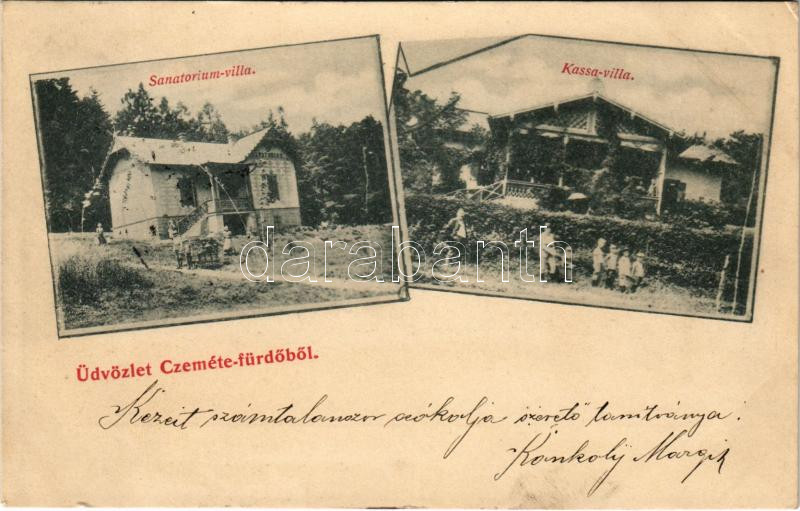 Sanatorium-villa.
Kassa-villa.
darabanth
Üdvözlet Czeméte-fürdőből.
Kezeit számtalanszor csókolja szerető tanítványa:
Kánkoly Margit